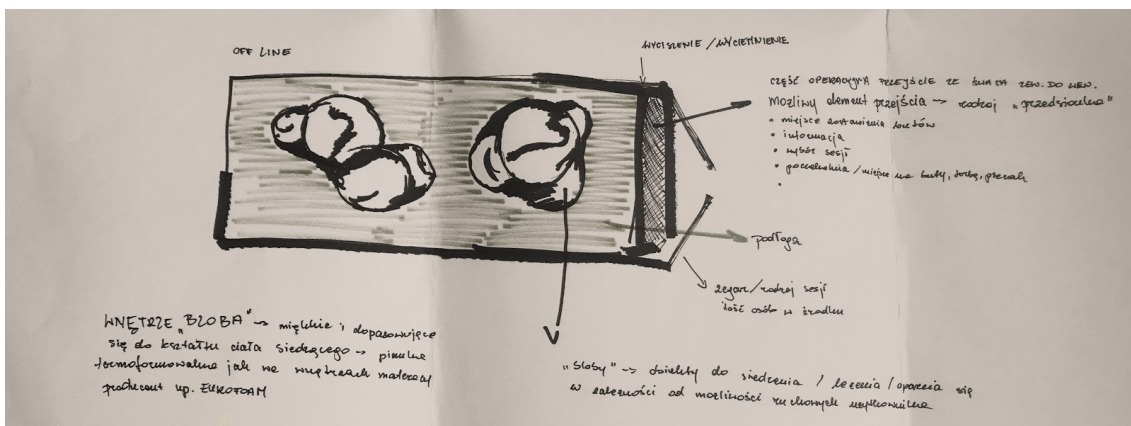 OFF LINE
WYCISZENIE / WYCIEMNIENIE
CZĘŚĆ OPERACYJNA PRZEJŚCIE ZE ŚWIATA ZEW. DO WEW.
Możliwy element przejścia → rodzaj „przedsionka”
• miejsce zostawienia butów
• informacja
• wybór sesji
• poczekalnia / miejsce na buty, torbę, plecak
•
podłoga
zegar / rodzaj sesji
ilość osób w środku
WNĘTRZE „BLOBA” → miękkie i dopasowujące
się do kształtu ciała siedzącego → pianka
termoformowalna jak we wnętrzach materacy
producent np. EUROFOAM
„bloby” → obiekty do siedzenia / leżenia / oparcia się
w zależności od możliwości ruchowych użytkownika